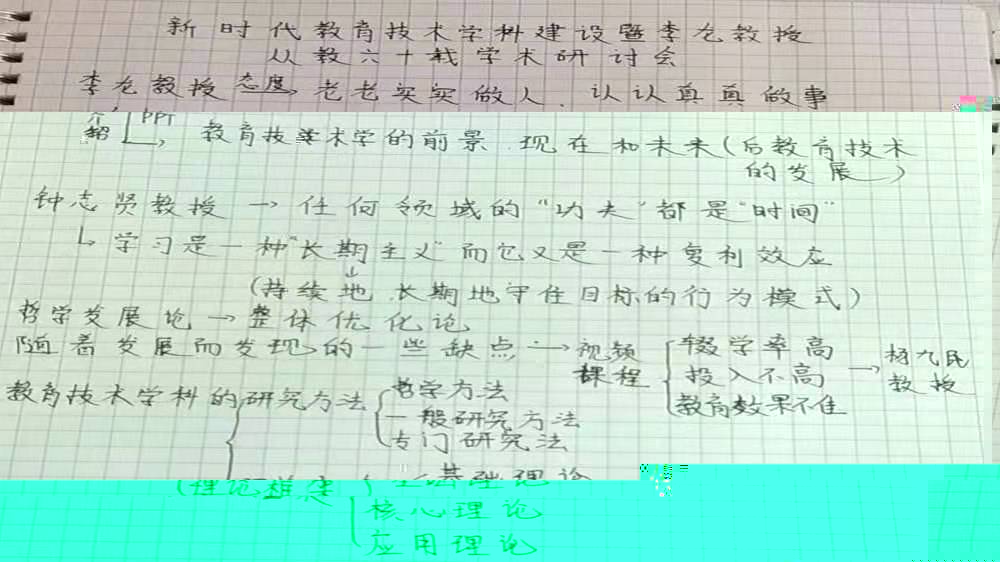 新时代教育技术学科建设暨李龙教授
从教六十载学术研讨会
李龙教授态度, 老老实实做人、认认真真做事
介绍 PPT → 教育技术学的前景、现在和未来(后教育技术
的发展)
钟志贤教授 → 任何领域的“功夫”都是“时间”
↳ 学习是一种“长期主义”而它又是一种复利效应
(持续地、长期地守住目标的行为模式)
哲学发展论 → 整体优化论
随着发展而发现的一些缺点 → 视频课程 { 辍学率高 投入不高 教育效果不佳 → 杨九民教授
教育技术学科的研究方法 { 哲学方法
一般研究方法
专门研究法
理论框架 { 基础理论
核心理论
应用理论